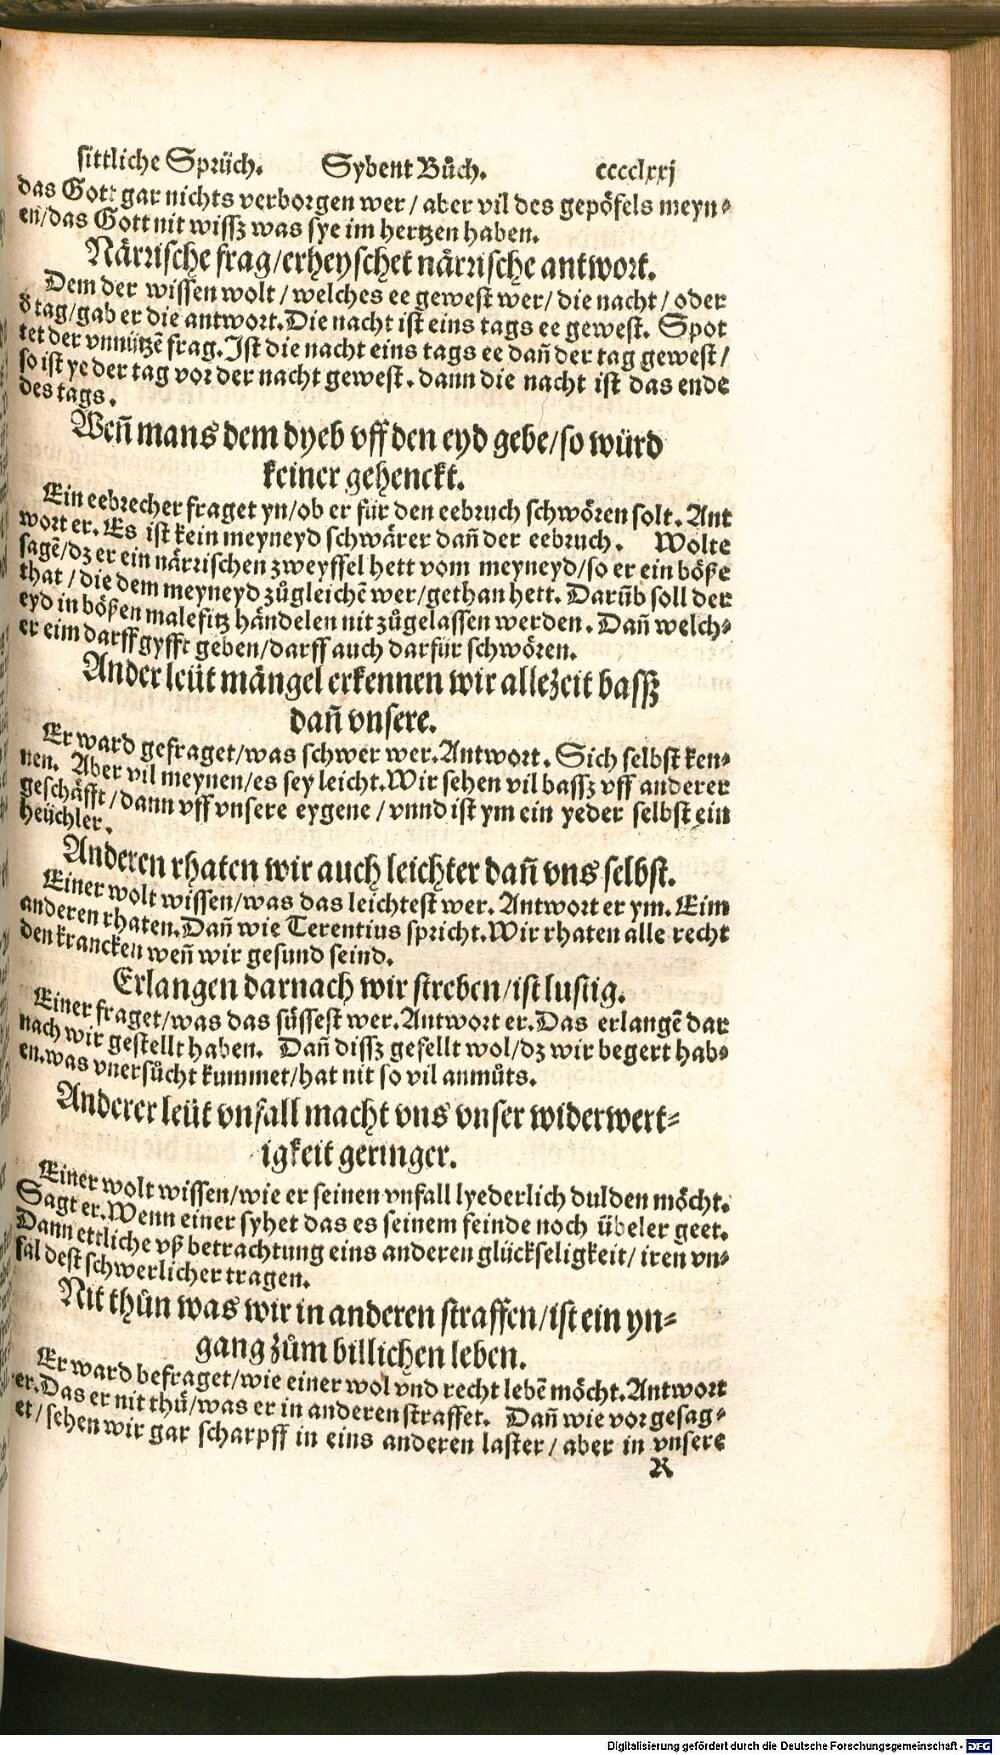 sittliche Sprüch. Sybent Bůch. cccclxxj
das Gott gar nichts verborgen wer / aber vil des gepöfels meyn⸗
en/das Gott nit wissz was sye im hertzen haben.
Närrische frag/erheyschet närrische antwort.
Dem der wissen wolt / welches ee gewest wer/ die nacht / oder
d̕ tag/gab er die antwort. Die nacht ist eins tags ee gewest. Spot
tet der vnnützẽ frag. Ist die nacht eins tags ee dañ der tag gewest /
so ist ye der tag vor der nacht gewest. dann die nacht ist das ende
des tags.
Weñ mans dem dyeb vff den eyd gebe/so würd
keiner gehenckt.
Ein eebrecher fraget yn/ob er für den eebruch schwören solt. Ant
wort er. Es ist kein meyneyd schwärer dañ der eebruch. Wolte
sagẽ/dz er ein närrischen zweyffel hett vom meyneyd/so er ein böße
that / die dem meyneyd zůgleichẽ wer/gethan hett. Darũb soll der
eyd in bößen malefitz händelen nit zůgelassen werden. Dañ welch⸗
er eim darff gyfft geben/darff auch darfür schwören.
Ander leüt mängel erkennen wir allezeit bassz
dañ vnsere.
Er ward gefraget/was schwer wer. Antwort. Sich selbst ken⸗
nen. Aber vil meynen/es sey leicht. Wir sehen vil bassz vff anderer
geschäfft / dann vff vnsere eygene / vnnd ist ym ein yeder selbst ein
heüchler.
Anderen rhaten wir auch leichter dañ vns selbst.
Einer wolt wissen/was das leichtest wer. Antwort er ym. Eim
anderen rhaten. Dañ wie Terentius spricht. Wir rhaten alle recht
den krancken weñ wir gesund seind.
Erlangen darnach wir streben/ist lustig.
Einer fraget/was das süssest wer. Antwort er. Das erlangẽ dar
nach wir gestellt haben. Dañ dissz gefellt wol/dz wir begert hab⸗
en. was vnersůcht kummet/hat nit so vil anmůts.
Anderer leüt vnfall macht vns vnser widerwert⸗
igkeit geringer.
Einer wolt wissen/wie er seinen vnfall lyederlich dulden möcht.
Sagt er. Wenn einer syhet das es seinem feinde noch übeler geet.
Dann ettliche vß betrachtung eins anderen glückseligkeit/ iren vn⸗
fal dest schwerlicher tragen.
Nit thůn was wir in anderen straffen/ist ein yn⸗
gang zům billichen leben.
Er ward befraget/wie einer wol vnd recht lebẽ möcht. Antwort
er. Das er nit thů/was er in anderen straffet. Dañ wie vor gesag⸗
et / sehen wir gar scharpff in eins anderen laster / aber in vnsere
R
Digitalisierung gefördert durch die Deutsche Forschungsgemeinschaft - DFG